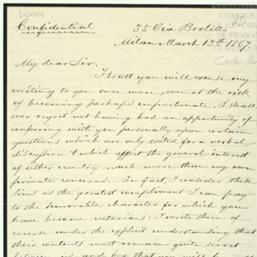 Confidential
35 Via Broletto
Milan March 13th 1867.
My dear Sir.
I trust you will excuse my
writing to you once more, even at the risk
of becoming perhaps importunate. I shall
ever regret not having had an opportunity of
conferring with you personally upon certain
questions which are only suited for a verbal
discussion & which affect the general interest
of either country, not more than my own
private concerns. In fact, I consider these
lines as the greatest compliment I can pay
to the honorable character for which you
have become notorious: I write them of
course under the explicit understanding that
their contents must remain quite secret